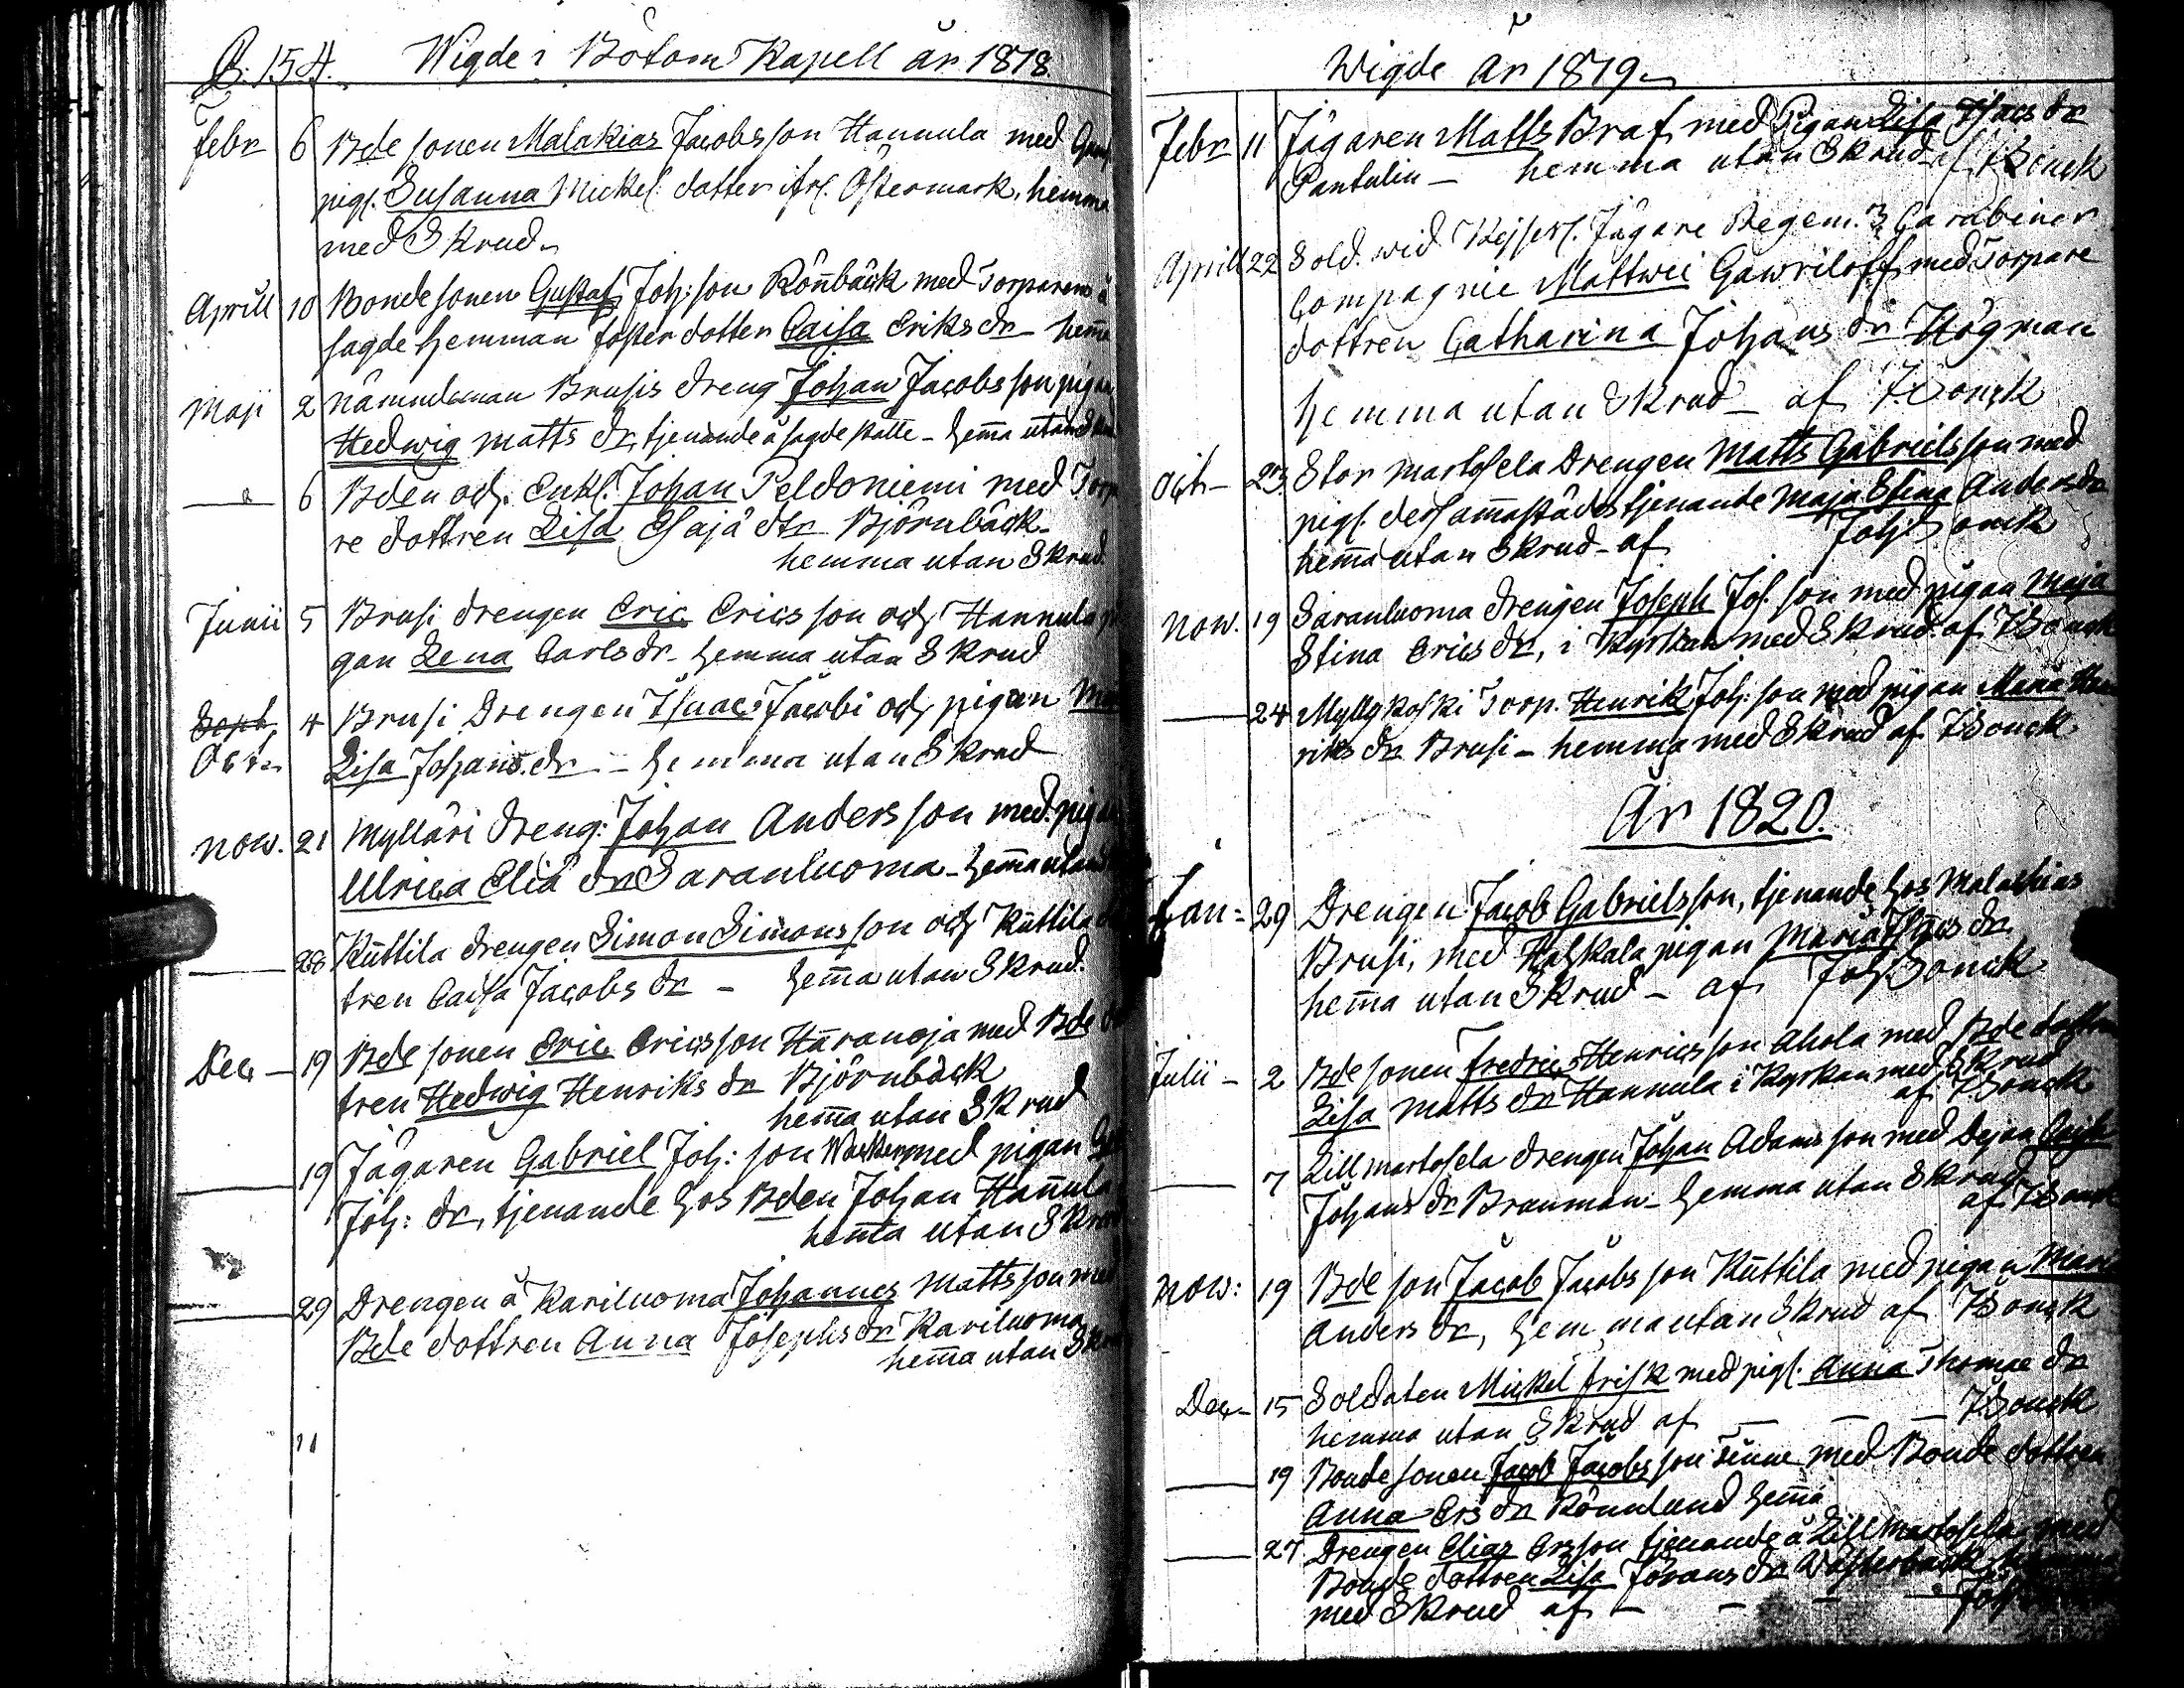 P. 154. Wigde i Bötom Kapell år 1818
Febr 6 Bde sonen Malakias Jacobsson Hannula med
pigs. Susanna Mickels dotter ifrs. Östermark, hemma
med Skrud
Aprill 10 Bonde sonen Gustaf Joh:son Rönbäck med Torparens å
sagde Hemman foster dotter Caisa Eriks dr - hema
Maji 2 nämndeman Brusis dreng Johan Jacobsson pigan
Hedwig Matts dr, tjenande å sagde ställe - hema utan
— 6 Bden och Enkl. Johan Peldoniemi med Torpa
re dottren Lisa Esajä dtr Björnbäck
hemma utan Skrud
Junii 5 Brusi drengen Eric Ericsson och Hannula pi
gan Lena Carls dr - hemma utan Skrud
Sept. 4 Brusi Drengen Isaac Jacobi och pigan
Octr Lisa Johans. dr - hemma utan Skrud
Now. 21 Mylläri dreng: Johan Andersson med pigan
Ulrica Eliä dr Saranluoma - hema utan
— 28 Kuttila drengen Simon Simonsson och Kuttila
tren Caisa Jacobs dr - hema utan Skrud.
Dec — 19 Bde sonen Eric Ericsson Haranoja med Bde
tren Hedwig Henriks dr Björnbäck
hema utan Skrud
— 19 Jägaren Gabriel Joh: son med pigan
Joh: dr, tjenande hos Bden Johan Hanula
hema utan Skrud
— 29 Drengen å Kariluoma Johannes Mattsson med
Bde dottren Anna Josephs dr Kariluoma
hema utan
11
Wigde år 1819
Febr 11 Jägaren Matts Braf med Pigan Lisa Isacs dr
Pantulin - hemma utan Skrud af JSonck
Aprill 22 Sold. wid Kejserl. Jägare Regem. 3 Carabinier
Compagnie Mattwei Gawriloff med Torpare
dottren Catharina Johans dr Högman
hemma utan Skrud - af JSonck
Octr - 23 Stor Martosela Drengen Matts Gabrielsson med
pigs. dersamastädes tjenande Maja Stina Anders dr
hema utan Skrud - af Joh Sonck
Now. 19 Saranluoma drengen Joseph Jos. son med pigan Maja
Stina Erics dr, i Kyrkan med Skrud af JSonck
— 24 Myllykoski Torp. Henrik Joh: son med pigan Maria Hen
riks dr Brusi - hemma med Skrud af JSonck
År 1820.
Jan = 29 Drengen Jacob Gabrielsson, tjenande hos Malachias
Brusi, med Hahkala pigan Maria Isacs dr
hema utan Skrud - af Joh Sonck
Julii - 2 Bde sonen Fredric Henricsson Ahola med Bde dottren
Lisa Matts dr Hannula i Kyrkan med Skrud
af JSonck
— 7 Lill Martosela drengen Johan Adamsson med Dejan
Johans dr Brauman - hemma utan Skrud
af JSonck
Now: 19 Bde son Jacob Jacobsson Kuttila med pigan Maria
Anders dr, hemma utan Skrud af JSonck
Dec - 15 Soldaten Mickel Frisk med pigs. Anna Thomae dr
hemma utan Skrud af — — — JSonck
— 19 Bonde sonen Jacob Jacobsson Tinne med Bonde dottren
Anna Ers dr Rönnlund hema
— 27 Drengen Elias Ersson tjenande å Lill Martosela med
Bonde dottren Lisa Jörans dr Wästerback
med Skrud af — — —